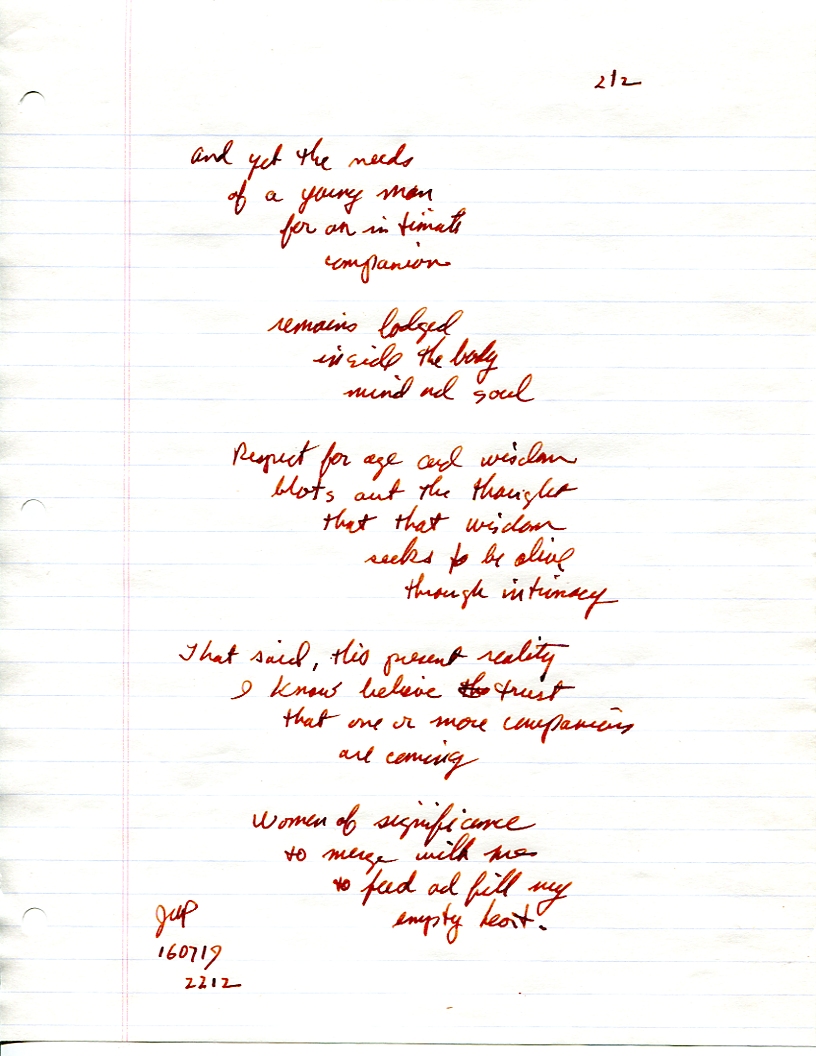 2/2
and yet the needs
of a young man
for an intimate
companion
remains lodged
inside the body
mind ad soul
Respect for age and wisdom
blots out the thought
that that wisdom
seeks to be alive
through intimacy
That said, this present reality
I know believe trust
that one or more companions
are coming
Women of significance
to merge with me
to feed ad fill my
empty heart.
JWP
160719
2212